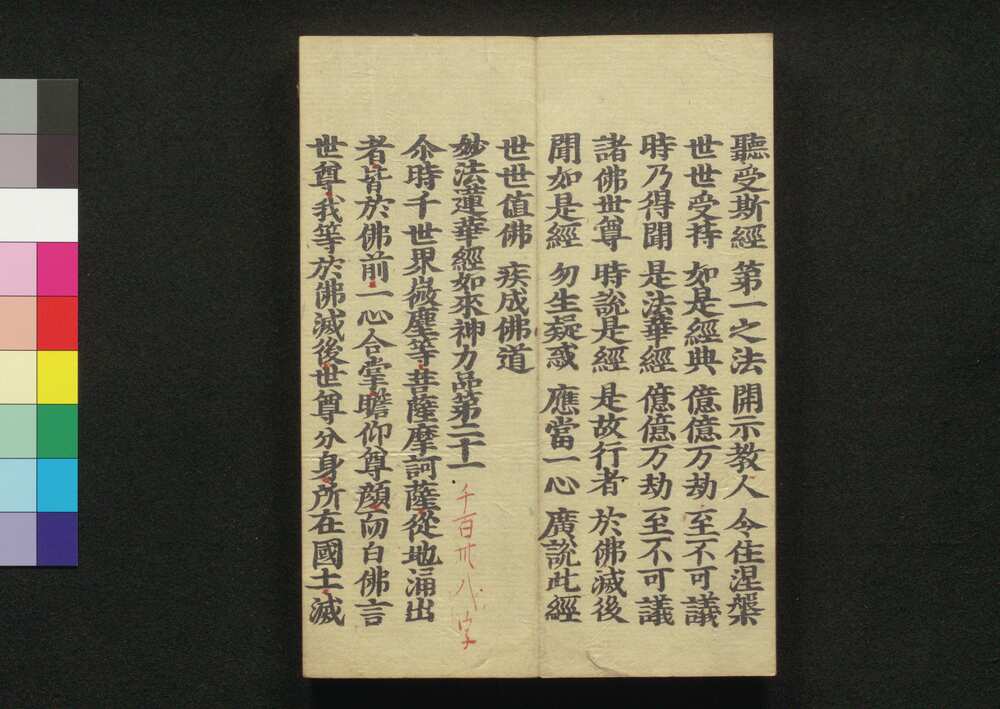 聽受斯經　第一之法　開示教人　令住涅槃
世世受持　如是經典　億億万劫　至不可議
時乃得聞　是法華經　億億万劫　至不可議
諸佛世尊　時說是經　是故行者　於佛滅後
聞如是經　勿生疑惑　應當一心　廣說此經
世世值佛　疾成佛道
妙法蓮華經如來神力品第二十一　千百卅八字
尒時千世界微塵等菩薩摩訶薩從地涌出
者皆於佛前一心合掌瞻仰尊顏而白佛言
世尊我等於佛滅後世尊分身所在國土滅